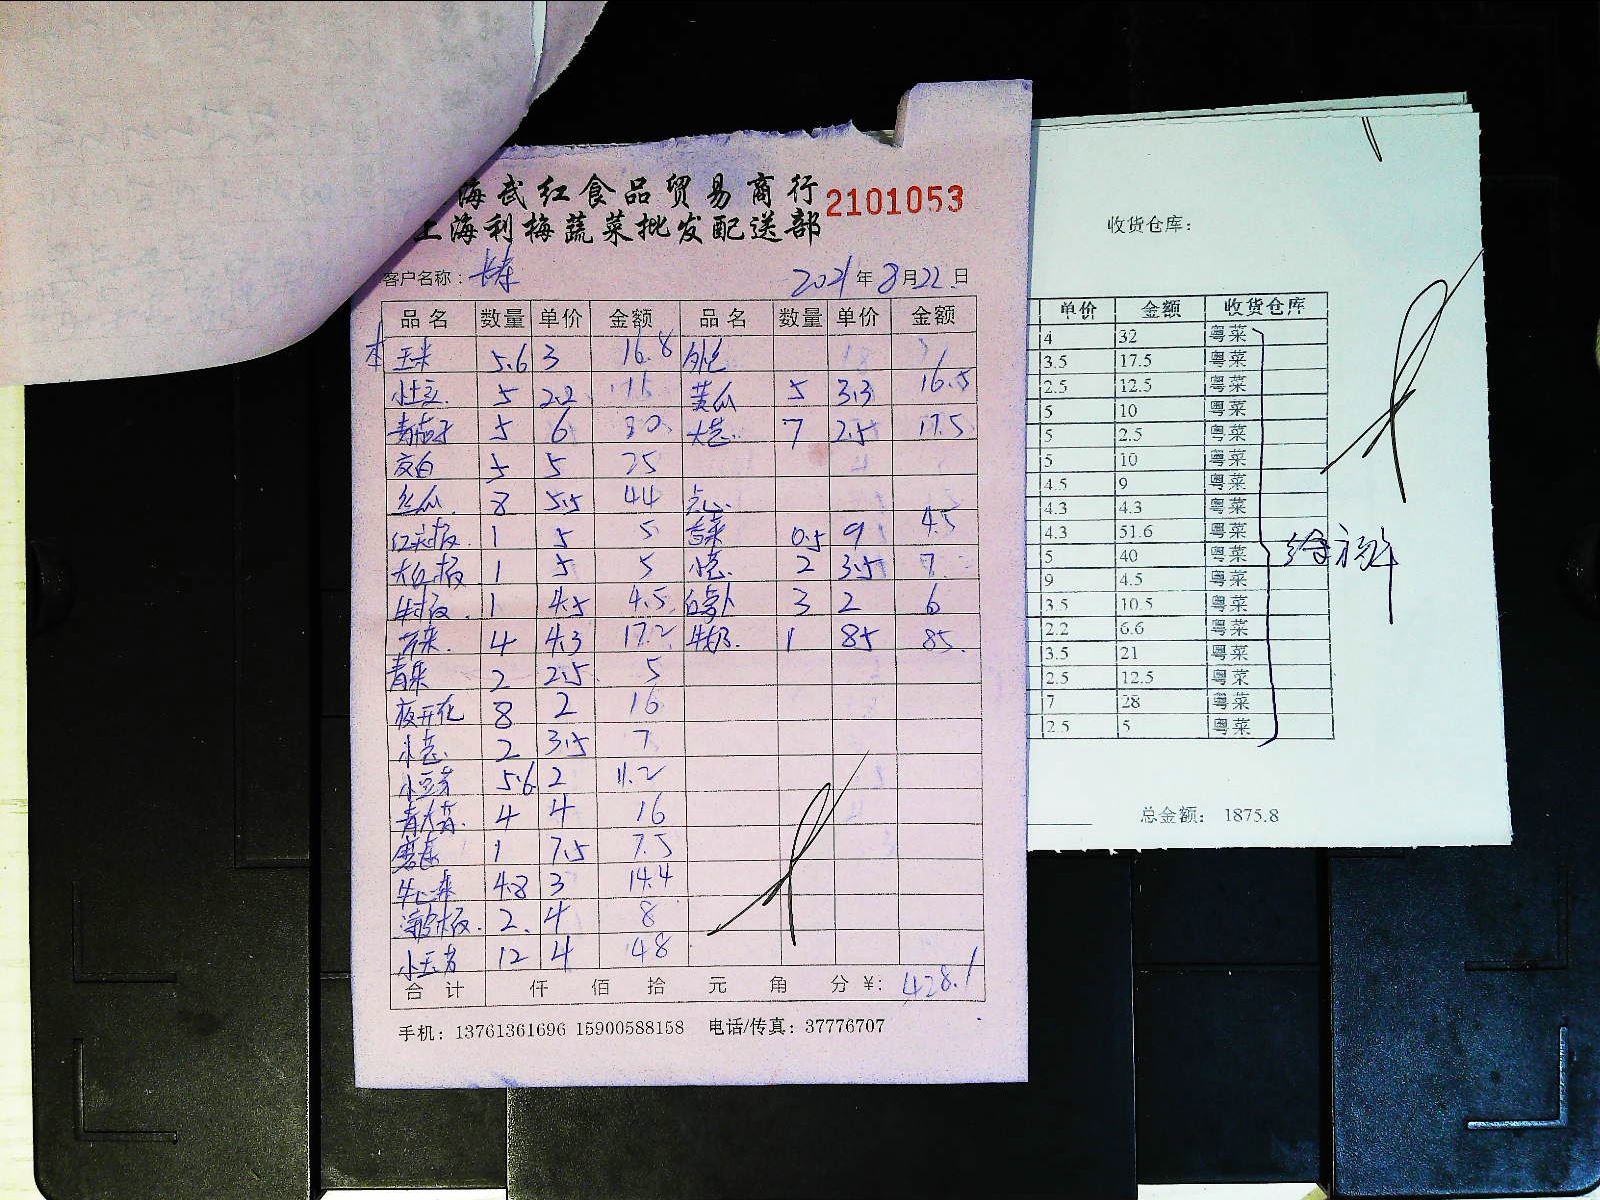 海武红食品贸易商行
2101053
上海利梅蔬菜批发配送部
客户名称：长寿 2021年8月22日
品名 数量 单价 金额 品名 数量 单价 金额
玉米 5.6 3 16.8
小土豆 5 2.2 11 黄瓜 5 3.3 16.5
青茄子 5 6 30 大葱 7 2.5 17.5
茭白 5 5 25
丝瓜 8 5.5 44 点心
红尖椒 1 5 5 香菜 0.5 9 4.5
大红椒 1 5 5 小葱 2 3.5 7
1 4.5 4.5 白萝卜 3 2 6
芹菜 4 4.3 17.2 牛奶 1 85 85
青菜 2 2.5 5
夜开花 8 2 16
小葱 2 3.5 7
小豆芽 5.6 2 11.2
青大蒜 4 4 16
1 7.5 7.5
牛心菜 4.8 3 14.4
2 4 8
12 4 48
合计 仟 佰 拾 元 角 分 ¥: 428.1
手机：13761361696 15900588158 电话/传真：37776707
收货仓库：
单价 金额 收货仓库
4 32 粤菜
3.5 17.5 粤菜
2.5 12.5 粤菜
5 10 粤菜
5 2.5 粤菜
5 10 粤菜
4.5 9 粤菜
4.3 4.3 粤菜
4.3 51.6 粤菜
5 40 粤菜
9 4.5 粤菜
3.5 10.5 粤菜
2.2 6.6 粤菜
3.5 21 粤菜
2.5 12.5 粤菜
7 28 粤菜
2.5 5 粤菜
总金额： 1875.8